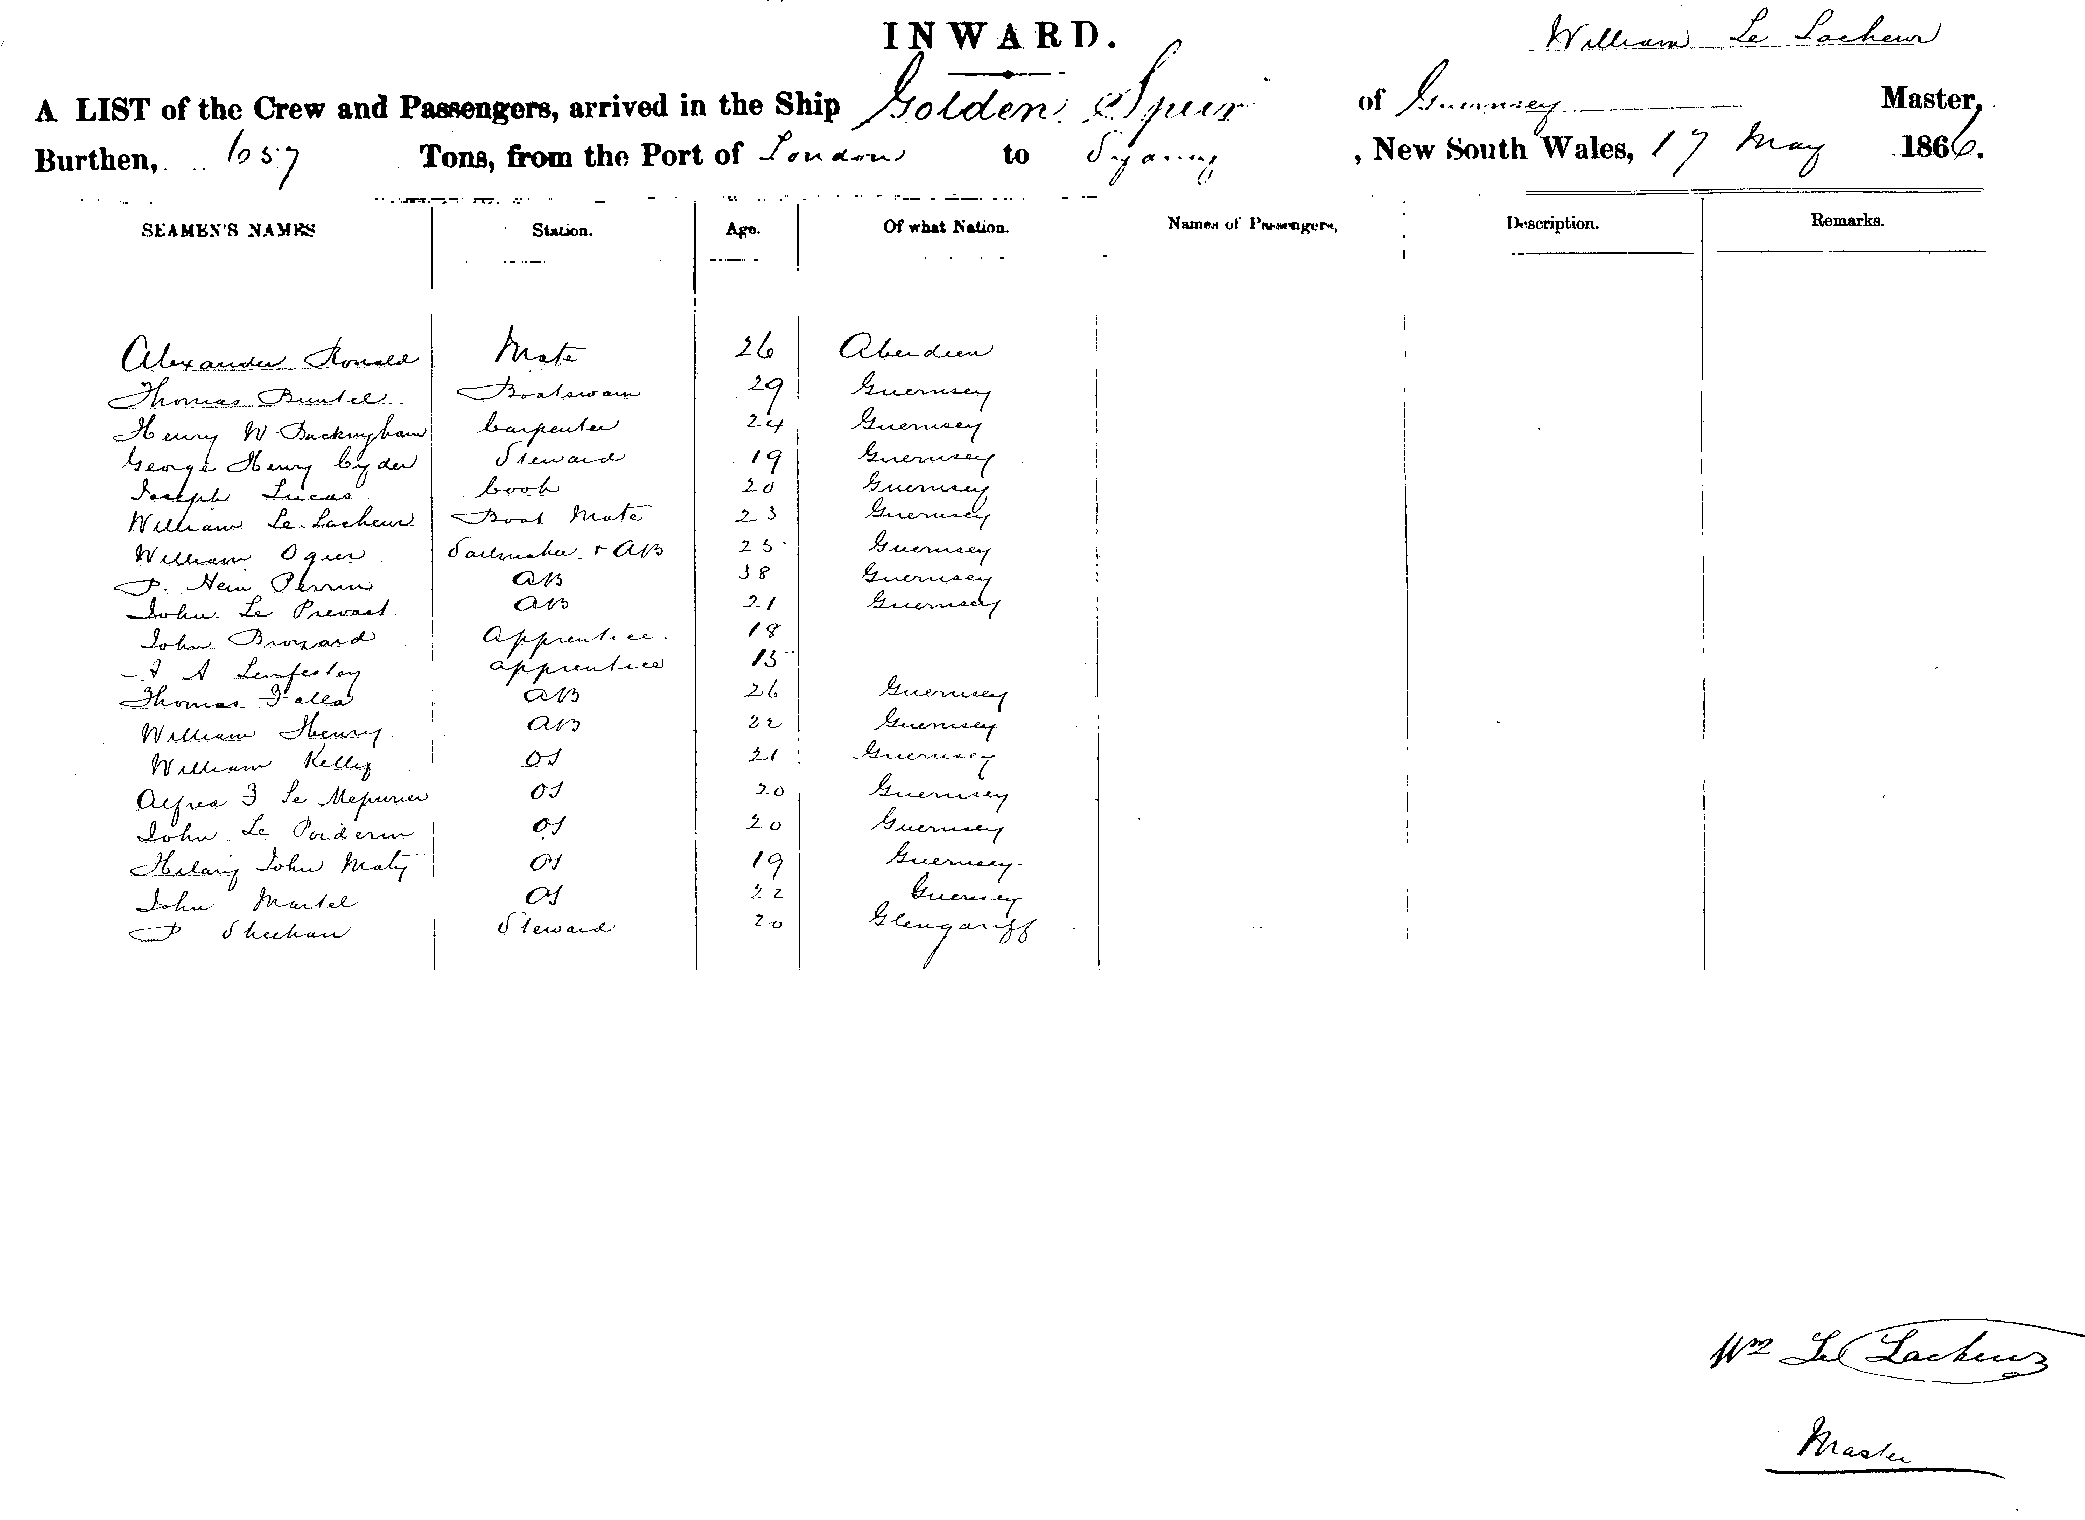 INWARD.
William Le Lacheur
A LIST of the Crew and Passengers, arrived in the Ship Golden Spur of Guernsey Master,
Burthen, 657 Tons, from the Port of London to Sydney, New South Wales, 17 May 1866.
SEAMEN'S NAMES Station. Age. Of what Nation. Names of Passengers, Description. Remarks.
Alexander Ronald Mate 26 Aberdeen
Thomas Buntel Boatswain 29 Guernsey
Henry W Buckingham Carpenter 24 Guernsey
George Henry Cyder Steward 19 Guernsey
Joseph Lucas Cook 20 Guernsey
William Le Lacheur Boat Mate 23 Guernsey
William Ogier Sailmaker + AB 25 Guernsey
P. Perrin AB 38 Guernsey
John Le Prevost AB 21 Guernsey
John Brouard Apprentice 18
A Lenfestey apprentice 15
Thomas Falla AB 26 Guernsey
William Henry AB 22 Guernsey
William Kelly OS 21 Guernsey
Alfred F Le Mesurier OS 20 Guernsey
John Le Poidevin OS 20 Guernsey
Hilary John OS 19 Guernsey
John Martel OS 22 Guernsey
P Sheehan Steward 20 Glengariff
Wm Le Lacheur
Master